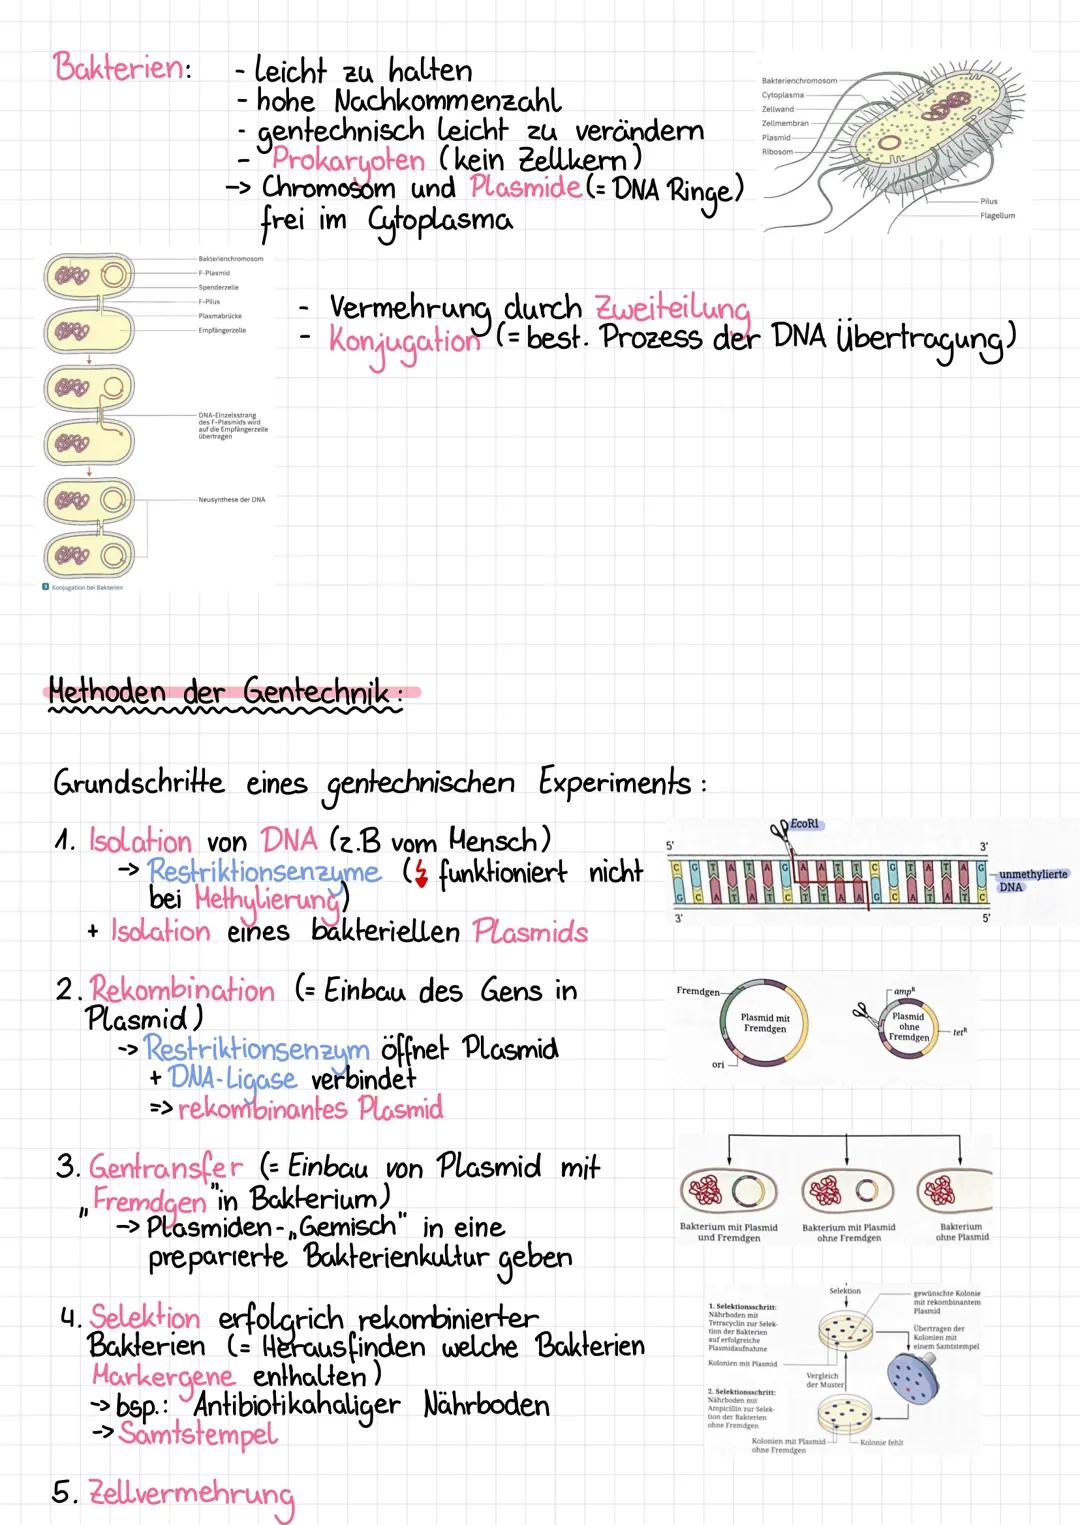 Bakterien:
- leicht zu halten
- hohe Nachkommenzahl
- gentechnisch leicht zu verändern
- Prokaryoten (kein Zellkern)
-> Chromosom und Plasmide (= DNA Ringe)
frei im Cytoplasma
Bakterienchromosom
Cytoplasma
Zellwand
Zellmembran
Plasmid
Ribosom
Pilus
Flagellum
Bakterienchromosom
F-Plasmid
Spenderzelle
F-Pilus
Plasmabrücke
Empfängerzelle
DNA-Einzelsstrang
des F-Plasmids wird
auf die Empfängerzelle
übertragen
Neusynthese der DNA
3 Konjugation bei Bakterien
- Vermehrung durch Zweiteilung
- Konjugation (= best. Prozess der DNA Übertragung)
Methoden der Gentechnik:
Grundschritte eines gentechnischen Experiments:
1. Isolation von DNA (z.B vom Mensch)
-> Restriktionsenzyme (↯ funktioniert nicht
bei Methylierung)
+ Isolation eines bakteriellen Plasmids
EcoRI
5' 3'
C G T A T A G A A T T C G T A T A G
G C A T A T C T T A A G C A T A T C
3' 5'
unmethylierte
DNA
2. Rekombination (= Einbau des Gens in
Plasmid)
-> Restriktionsenzym öffnet Plasmid
+ DNA-Ligase verbindet
=> rekombinantes Plasmid
Fremdgen
Plasmid mit
Fremdgen
ori
ampR
Plasmid
ohne
Fremdgen
tetR
3. Gentransfer (= Einbau von Plasmid mit
„Fremdgen" in Bakterium)
-> Plasmiden-„Gemisch" in eine
preparierte Bakterienkultur geben
Bakterium mit Plasmid
und Fremdgen
Bakterium mit Plasmid
ohne Fremdgen
Bakterium
ohne Plasmid
4. Selektion erfolgrich rekombinierter
Bakterien (= Herausfinden welche Bakterien
Markergene enthalten)
-> bsp.: Antibiotikahaliger Nährboden
-> Samtstempel
Selektion
1. Selektionsschritt:
Nährboden mit
Tetracyclin zur Selek-
tion der Bakterien
auf erfolgreiche
Plasmidaufnahme
Kolonien mit Plasmid
gewünschte Kolonie
mit rekombinantem
Plasmid
Übertragen der
Kolonien mit
einem Samtstempel
Vergleich
der Muster
2. Selektionsschritt:
Nährboden mit
Ampicillin zur Selek-
tion der Bakterien
ohne Fremdgen
Kolonien mit Plasmid
ohne Fremdgen
Kolonie fehlt
5. Zellvermehrung